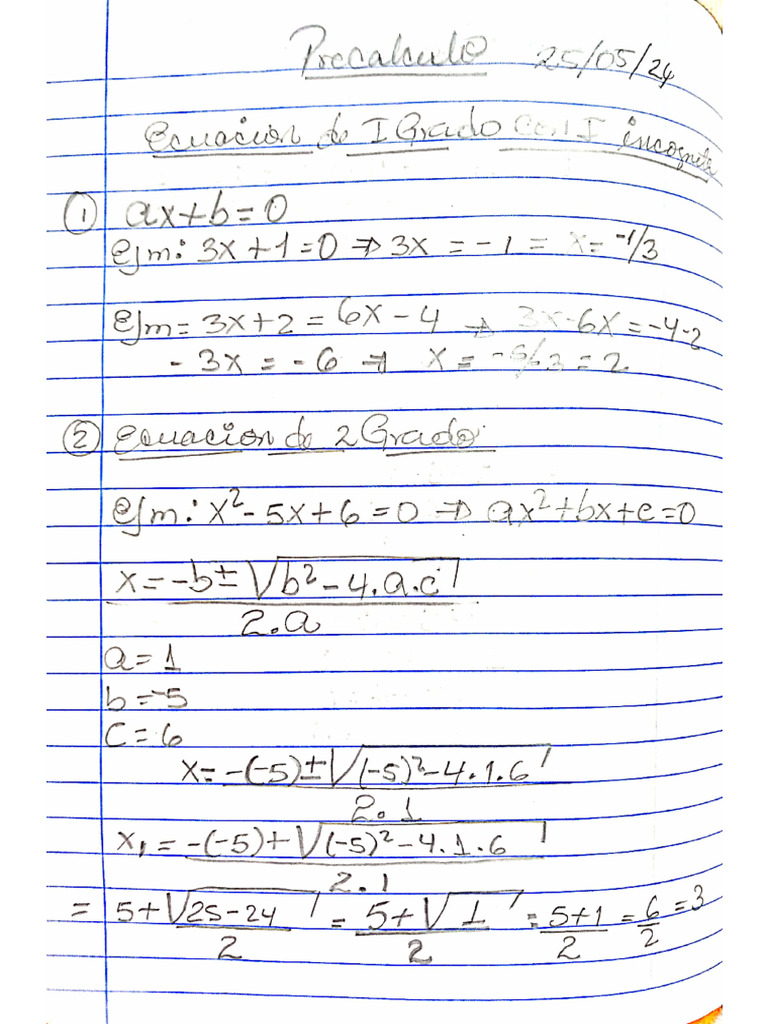 Precalculo 25/05/24
Ecuacion de I Grado con I incognita
① ax+b=0
Ejm: 3x+1=0 ⇒ 3x = -1 = x = -1/3
Ejm = 3x+2 = 6x-4 ⇒ 3x-6x = -4-2
-3x = -6 ⇒ x = = 2
② Ecuacion de 2 Grado
Ejm: x²-5x+6=0 ⇒ ax²+bx+c=0
x = -b ± √b²-4.a.c
2.a
a=1
b=-5
c=6
x = -(-5) ± √(-5)²-4.1.6
2.1
x₁ = -(-5)+√(-5)²-4.1.6
2.1
= 5+√25-24 = 5+√1 = 5+1 = 6 = 3
2 2 2 2